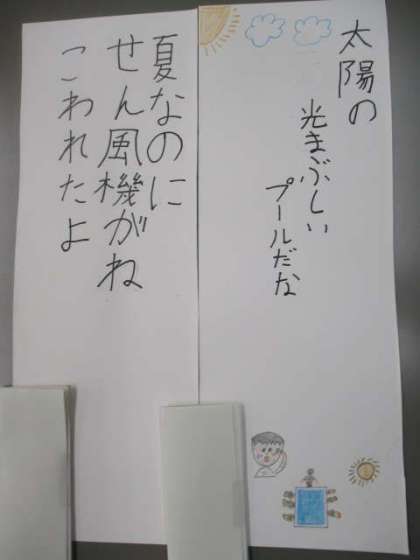 太陽の
光まぶしい
プールだな
夏なのに
せん風機がね
こわれたよ